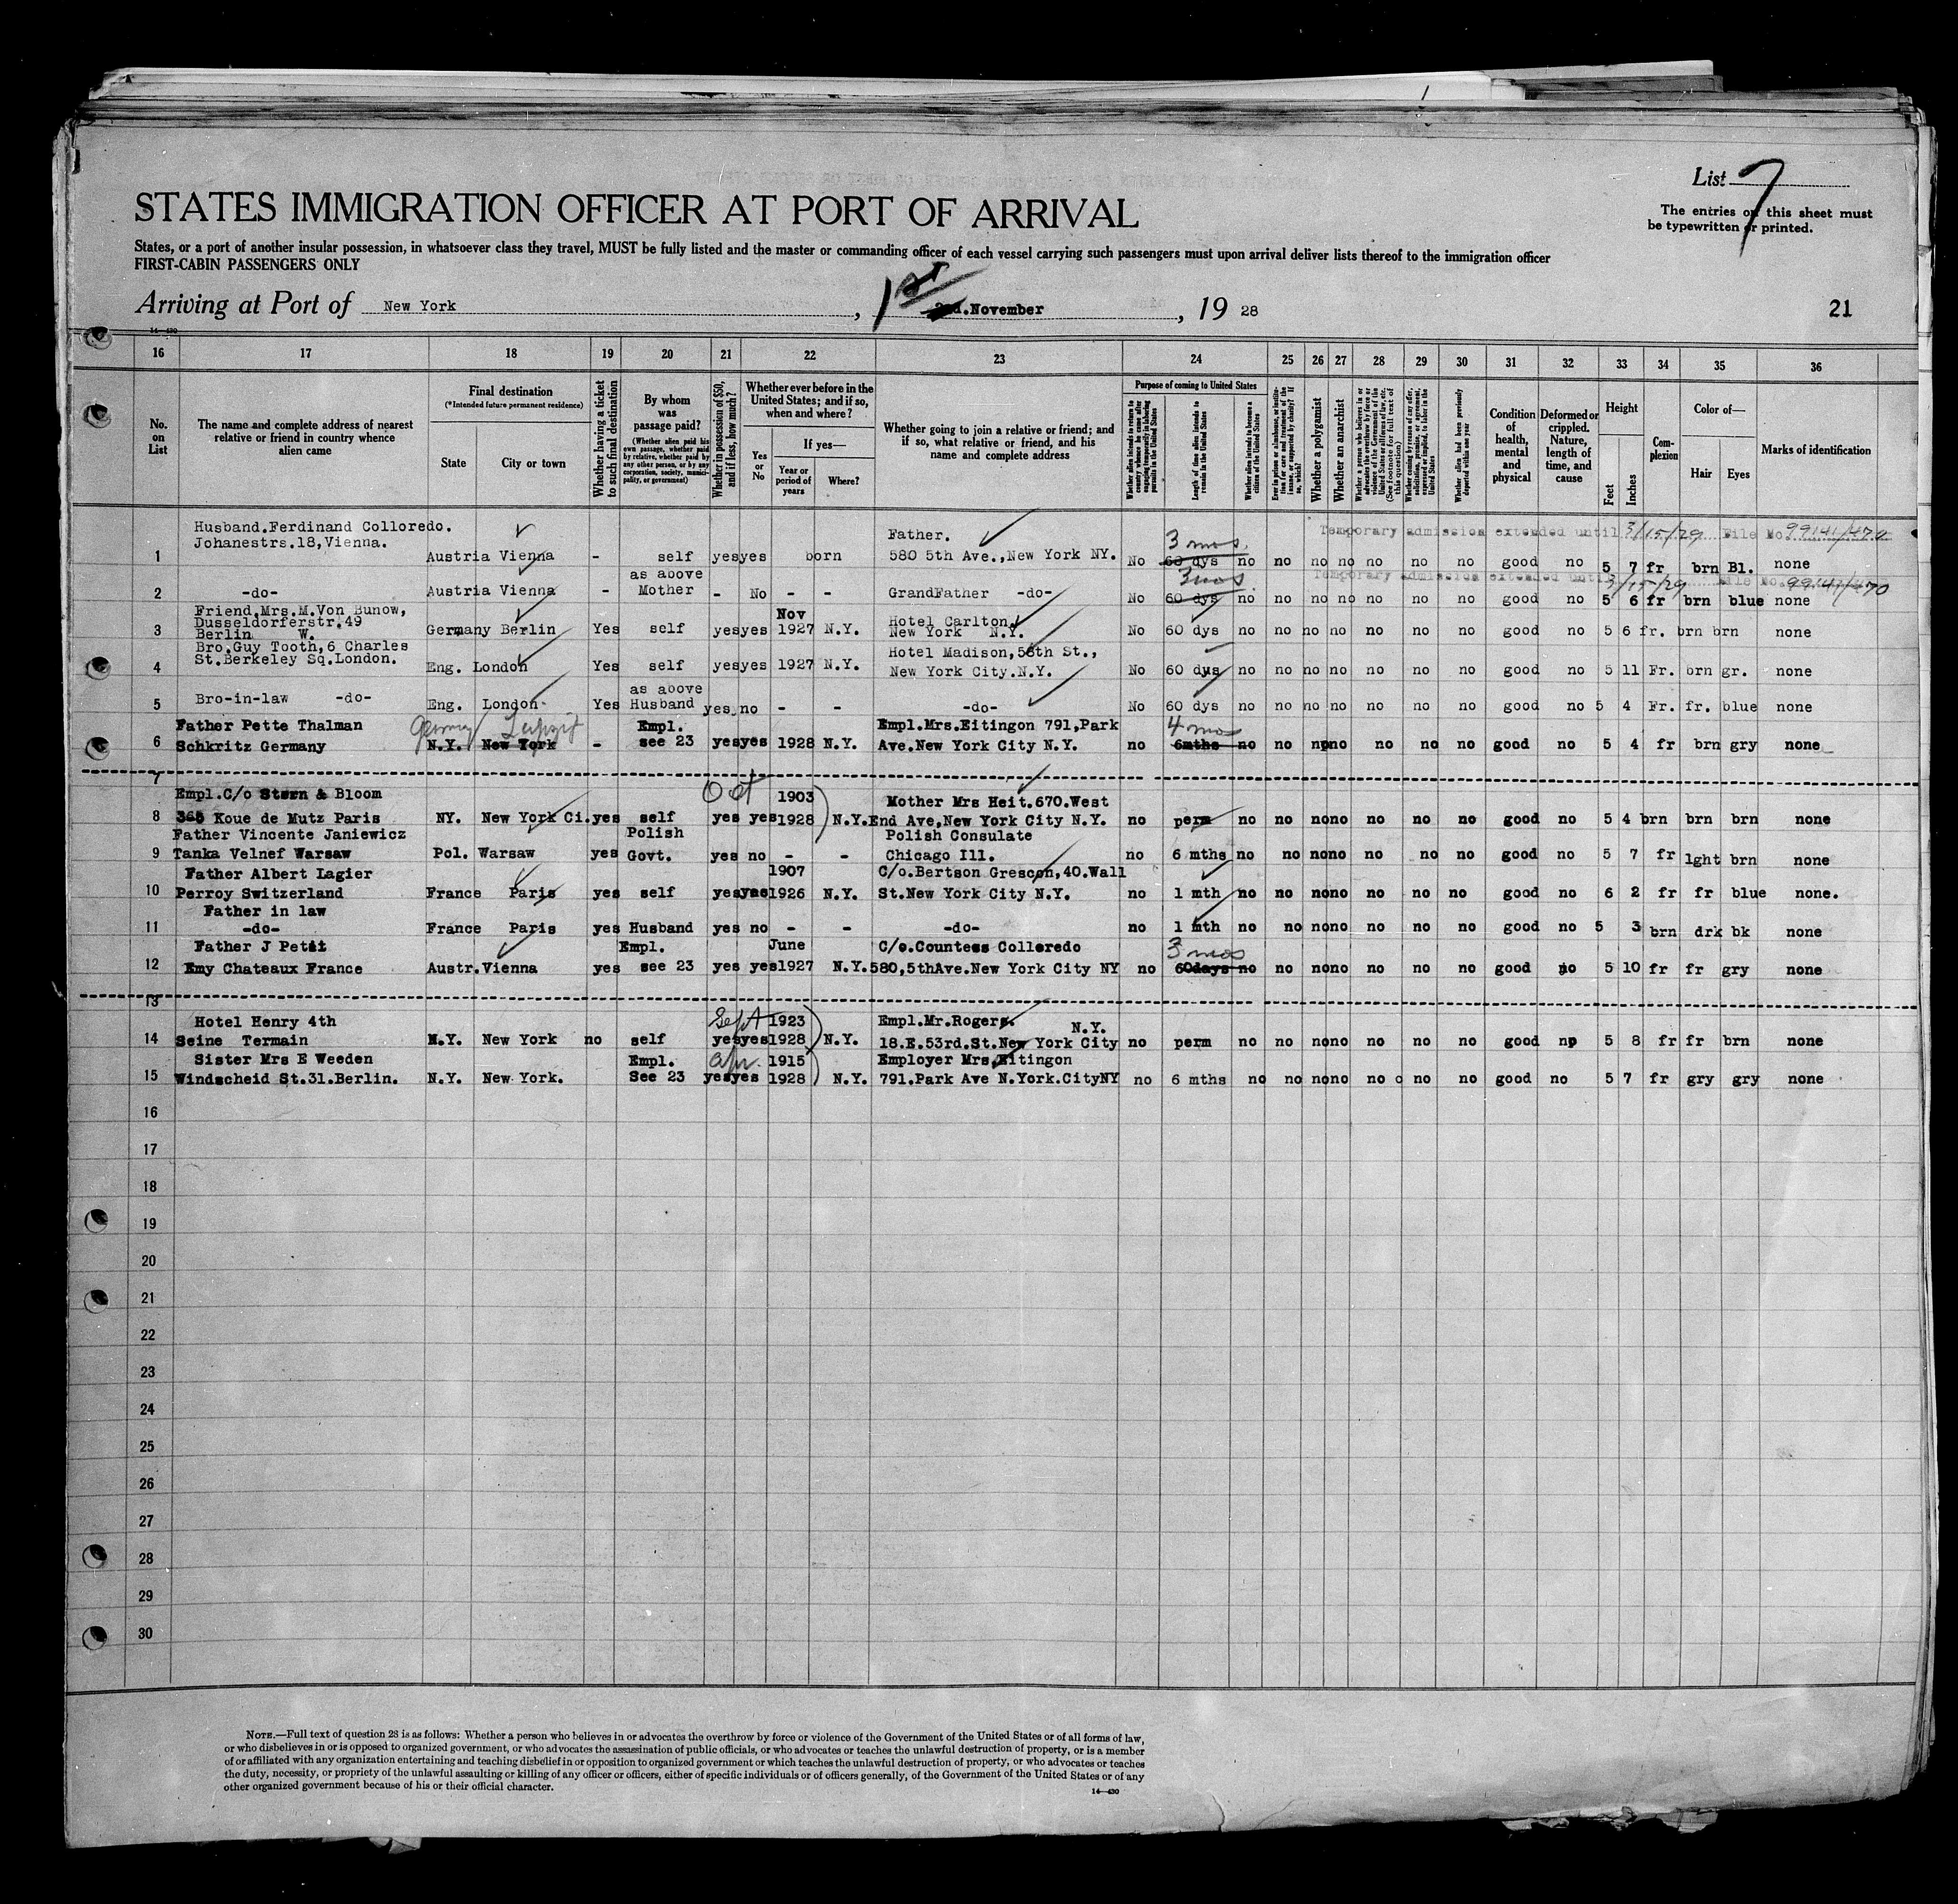 List 7
The entries on this sheet must
be typewritten or printed.
STATES IMMIGRATION OFFICER AT PORT OF ARRIVAL
States, or a port of another insular possession, in whatsoever class they travel, MUST be fully listed and the master or commanding officer of each vessel carrying such passengers must upon arrival deliver lists thereof to the immigration officer
FIRST-CABIN PASSENGERS ONLY
Arriving at Port of New York, 1st 2nd.November, 19 28
21
14—430
16 17 18 19 20 21 22 23 24 25 26 27 28 29 30 31 32 33 34 35 36
No. on List
The name and complete address of nearest relative or friend in country whence alien came
Final destination
(*Intended future permanent residence)
State
City or town
Whether having a ticket to such final destination
By whom was passage paid?
(Whether alien paid his own passage, whether paid by relative, whether paid by any other person, or by any corporation, society, municipality, or government)
Whether in possession of $50, and if less, how much?
Whether ever before in the United States; and if so, when and where?
Yes or No
If yes—
Year or period of years
Where?
Whether going to join a relative or friend; and if so, what relative or friend, and his name and complete address
Purpose of coming to United States
Whether alien intends to return to country whence he came after engaging temporarily in laboring pursuits in the United States
Length of time alien intends to remain in the United States
Whether alien intends to become a citizen of the United States
Ever in prison or almshouse, or institution for care and treatment of the insane, or supported by charity? If so, which?
Whether a polygamist
Whether an anarchist
Whether a person who believes in or advocates the overthrow by force or violence of the Government of the United States or all forms of law, etc. (See footnote for full text of this question)
Whether coming by reason of any offer, solicitation, promise, or agreement, expressed or implied, to labor in the United States
Whether alien had been previously deported within one year
Condition of health, mental and physical
Deformed or crippled. Nature, length of time, and cause
Height
Feet
Inches
Complexion
Color of—
Hair
Eyes
Marks of identification
Husband.Ferdinand Colloredo. Father. Temporary admission extended until 3/15/29 File No. 99141/470
Johanestrs.18,Vienna. 3 mos.
1 Austria Vienna - self yes yes born 580 5th Ave.,New York NY. No 60 dys no no no no no no no good no 5 7 fr brn Bl. none
as above 3 mos Temporary admission extended until 3/15/29 File No. 99141/470
2 -do- Austria Vienna - Mother - No - - GrandFather -do- No 60 dys no no no no no no no good no 5 6 fr brn blue none
Friend,Mrs.M.Von Bunow, Nov
Dusseldorferstr.49 Hotel Carlton,
3 Berlin W. Germany Berlin Yes self yes yes 1927 N.Y. New York N.Y. No 60 dys no no no no no no no good no 5 6 fr. brn brn none
Bro.Guy Tooth,6 Charles Hotel Madison,58th St.,
4 St.Berkeley Sq.London. Eng. London Yes self yes yes 1927 N.Y. New York City.N.Y. No 60 dys no no no no no no no good no 5 11 Fr. brn gr. none
as above
5 Bro-in-law -do- Eng. London Yes Husband yes no - - -do- No 60 dys no no no no no no no good no 5 4 Fr. fr. blue none
Father Pette Thalman Germany Leipzig Empl. Empl.Mrs.Eitingon 791,Park 4 mos
6 Schkritz Germany N.Y. New York - see 23 yes yes 1928 N.Y. Ave.New York City N.Y. no 6mths no no no no no no no good no 5 4 fr brn gry none
7
Empl.C/o Stern & Bloom Oct 1903 Mother Mrs Heit.670.West
8 365 Koue de Mutz Paris NY. New York Ci. yes self yes yes 1928 N.Y. End Ave,New York City N.Y. no perm no no no no no no no good no 5 4 brn brn brn none
Father Vincente Janiewicz Polish Polish Consulate
9 Tanka Velnef Warsaw Pol. Warsaw yes Govt. yes no - - Chicago Ill. no 6 mths no no no no no no no good no 5 7 fr lght brn none
Father Albert Lagier 1907 C/o.Bertson Grescon,40.Wall
10 Perroy Switzerland France Paris yes self yes yes 1926 N.Y. St.New York City N.Y. no 1 mth no no no no no no no good no 6 2 fr fr blue none.
Father in law
11 -do- France Paris yes Husband yes no - - -do- no 1 mth no no no no no no no good no 5 3 brn drk bk none
Father J Petit Empl. June C/o.Countess Colleredo 3 mos
12 Emy Chateaux France Austr. Vienna yes see 23 yes yes 1927 N.Y. 580,5thAve.New York City NY no 60days no no no no no no no good no 5 10 fr fr gry none
13
Hotel Henry 4th Sept 1923 Empl.Mr.Rogers. N.Y.
14 Seine Termain N.Y. New York no self yes yes 1928 N.Y. 18.E.53rd.St.New York City no perm no no no no no no no good no 5 8 fr fr brn none
Sister Mrs E Weeden Empl. Apr. 1915 Employer Mrs,Eitingon
15 Windscheid St.31.Berlin. N.Y. New York. See 23 yes yes 1928 N.Y. 791.Park Ave N.York.CityNY no 6 mths no no no no no no no good no 5 7 fr gry gry none
16
17
18
19
20
21
22
23
24
25
26
27
28
29
30
NOTE.—Full text of question 28 is as follows: Whether a person who believes in or advocates the overthrow by force or violence of the Government of the United States or of all forms of law,
or who disbelieves in or is opposed to organized government, or who advocates the assassination of public officials, or who advocates or teaches the unlawful destruction of property, or is a member
of or affiliated with any organization entertaining and teaching disbelief in or opposition to organized government or which teaches the unlawful destruction of property, or who advocates or teaches
the duty, necessity, or propriety of the unlawful assaulting or killing of any officer or officers, either of specific individuals or of officers generally, of the Government of the United States or of any
other organized government because of his or their official character.
14—430